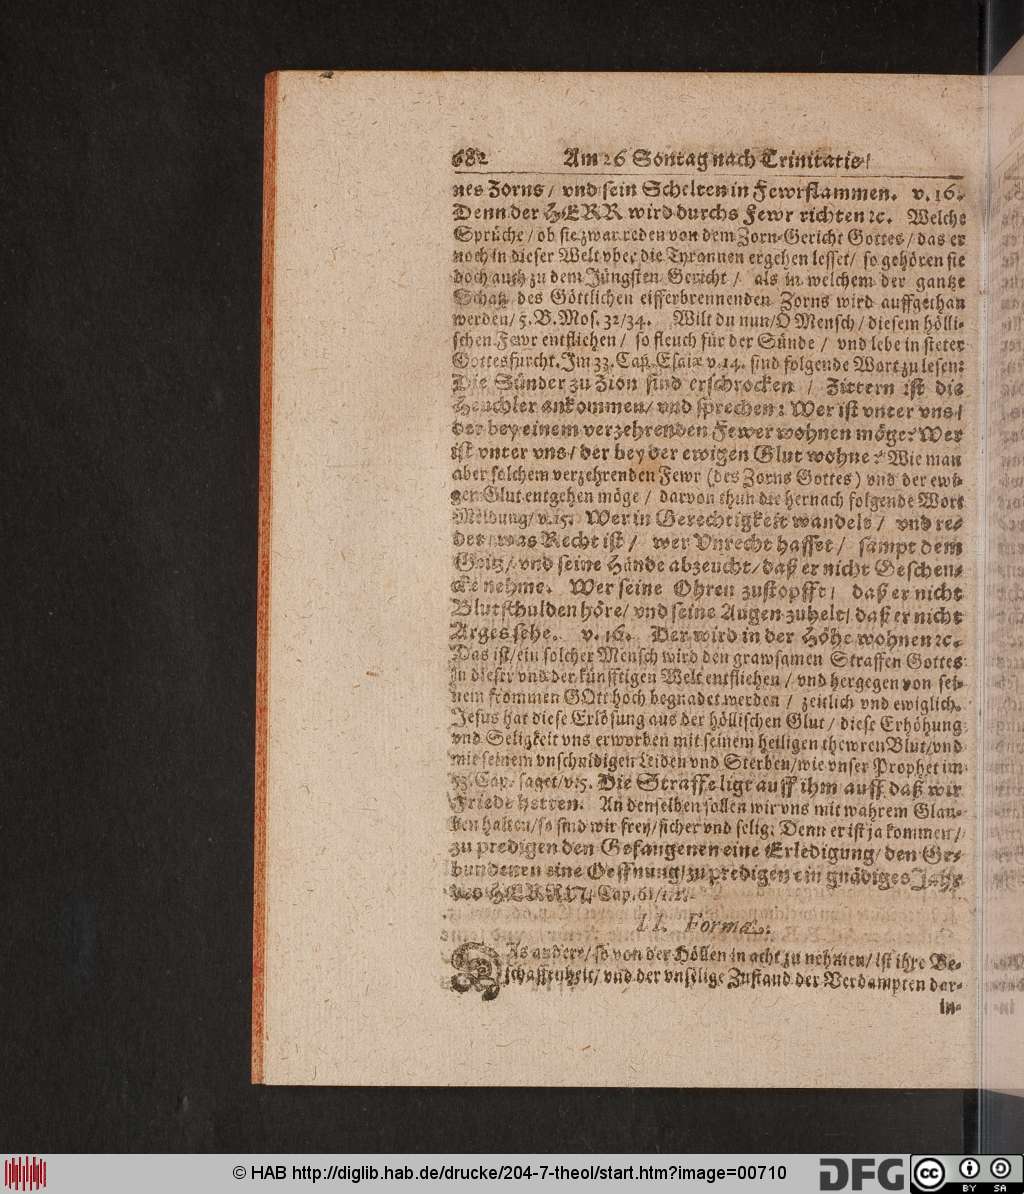 682 Am 26 Sontag nach Trinitatis/
nes Zorns/ vnd sein Schelten in Fewrflammen. v. 16.
Denn der HERR wird durchs Fewr richten ꝛc. Welche
Sprüche/ ob sie zwar reden von dem Zorn-Gericht Gottes/ das er
noch in dieser Welt vber die Tyrannen ergehen lesset/ so gehören sie
doch auch zu dem Jüngsten Gericht/ als in welchem der gantze
Schatz des Göttlichen eifferbrennenden Zorns wird auffgethan
werden/ 5. B. Mos. 32/34. Wilt du nun/ O Mensch/ diesem hölli-
schen Fewr entfliehen/ so fleuch für der Sünde/ vnd lebe in steter
Gottesfurcht. Im 33. Cap. Esaiæ v. 14. sind folgende Wort zu lesen:
Die Sünder zu Zion sind erschrocken/ Zittern ist die
Heuchler ankommen/ vnd sprechen: Wer ist vnter vns/
der bey einem verzehrenden Fewer wohnen möge? Wer
ist vnter vns/ der bey der ewigen Glut wohne? Wie man
aber solchem verzehrenden Fewr (des Zorns Gottes) vnd der ewi-
gen Glut entgehen möge/ darvon thun die hernach folgende Wort
Meldung/ v. 15. Wer in Gerechtigkeit wandelt/ vnd re-
det was Recht ist/ wer Vnrecht hasset/ sampt dem
Geitz/ vnd seine Hände abzeucht/ daß er nicht Geschen-
cke nehme. Wer seine Ohren zustopfft/ daß er nicht
Blutschulden höre/ vnd seine Augen zuhelt/ daß er nicht
Arges sehe. v. 16. Der wird in der Höhe wohnen ꝛc.
Das ist/ ein solcher Mensch wird den grawsamen Straffen Gottes
in dieser vnd der künfftigen Welt entfliehen/ vnd hergegen von sei-
nem frommen GOtt hoch begnadet werden/ zeitlich vnd ewiglich.
Jesus hat diese Erlösung aus der höllischen Glut/ diese Erhöhung
vnd Seligkeit vns erworben mit seinem heiligen thewren Blut/ vnd
mit seinem vnschuldigen Leiden vnd Sterben/ wie vnser Prophet im
53. Cap. saget/ v. 5. Die Straffe ligt auff ihm auff daß wir
Friede hetten. An denselben sollen wir vns mit wahrem Glau-
ben halten/ so sind wir frey/ sicher vnd selig: Denn er ist ja kommen/
zu predigen den Gefangenen eine Erledigung/ den Ge-
bundenen eine Oeffnung/ zu predigen ein gnädiges Jahr
des HERRN/ Cap. 61/1.2.
II. Forma.
DAs andere/ so von der Höllen in acht zu nehmen/ ist ihre Be-
schaffenheit/ vnd der vnselige Zustand der Verdampten dar-
in-
© HAB http://diglib.hab.de/drucke/204-7-theol/start.htm?image=00710
DFG
cc
BY SA